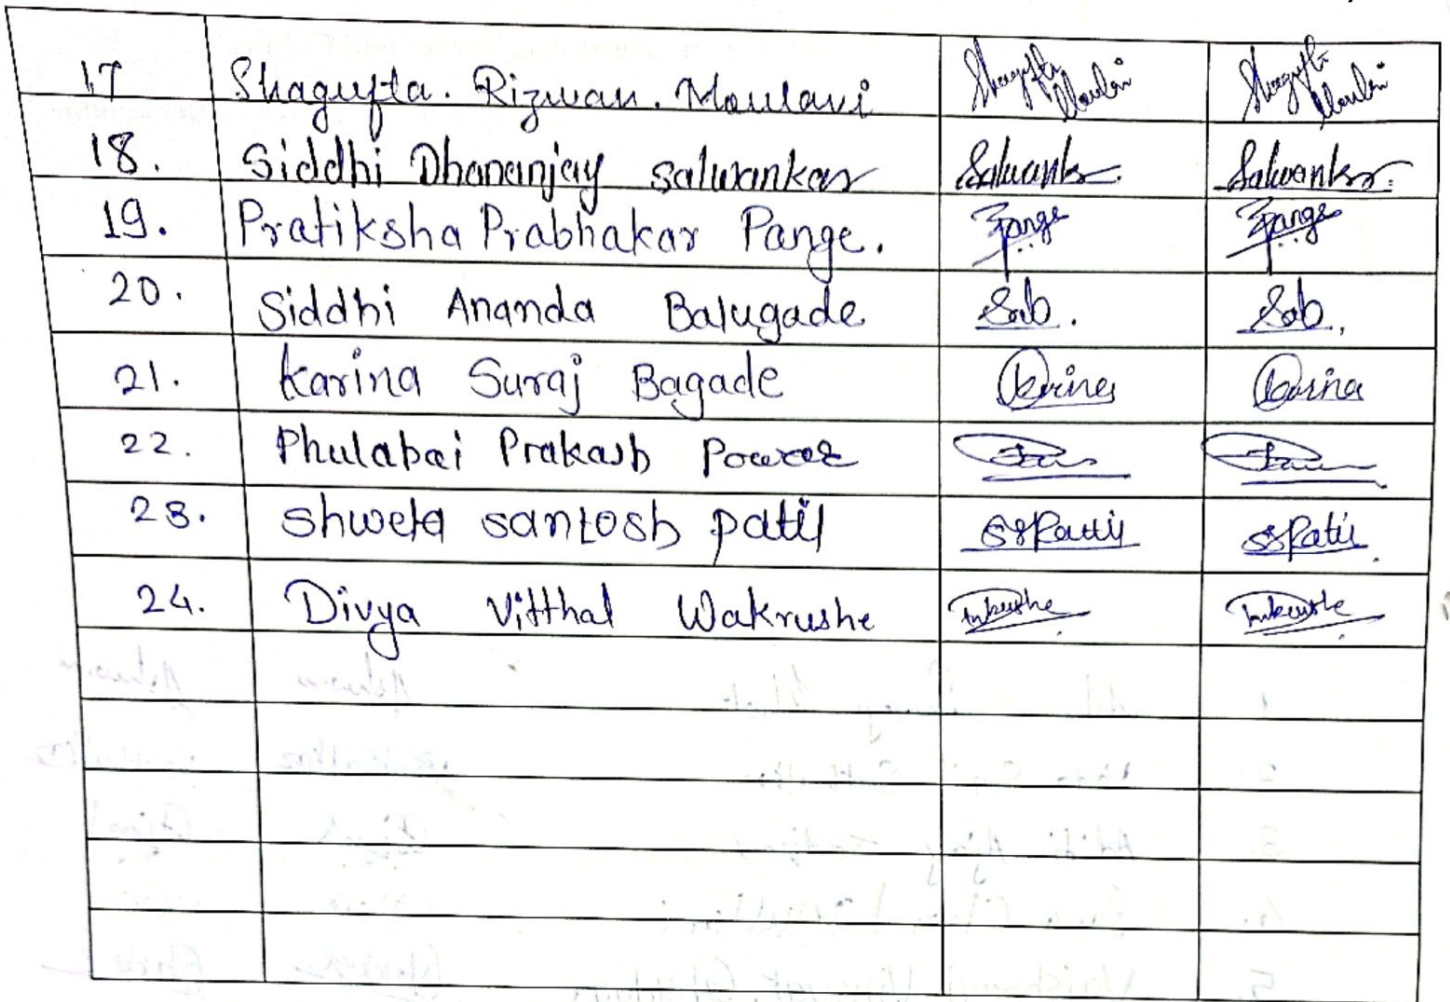 17 Shagufta. Rizwan. Moulavi Shagufta Moulavi Shagufta Moulavi
18. Siddhi Dhananjay salwankar Salwankar. Salwankar.
19. Pratiksha Prabhakar Pange. Pange Pange
20. Siddhi Ananda Balugade Sab. Sab.
21. Karina Suraj Bagade Karina Karina
22. Phulabai Prakash Powar
23. shweta santosh patil SSPatil SSPatil
24. Divya Vitthal Wakrushe